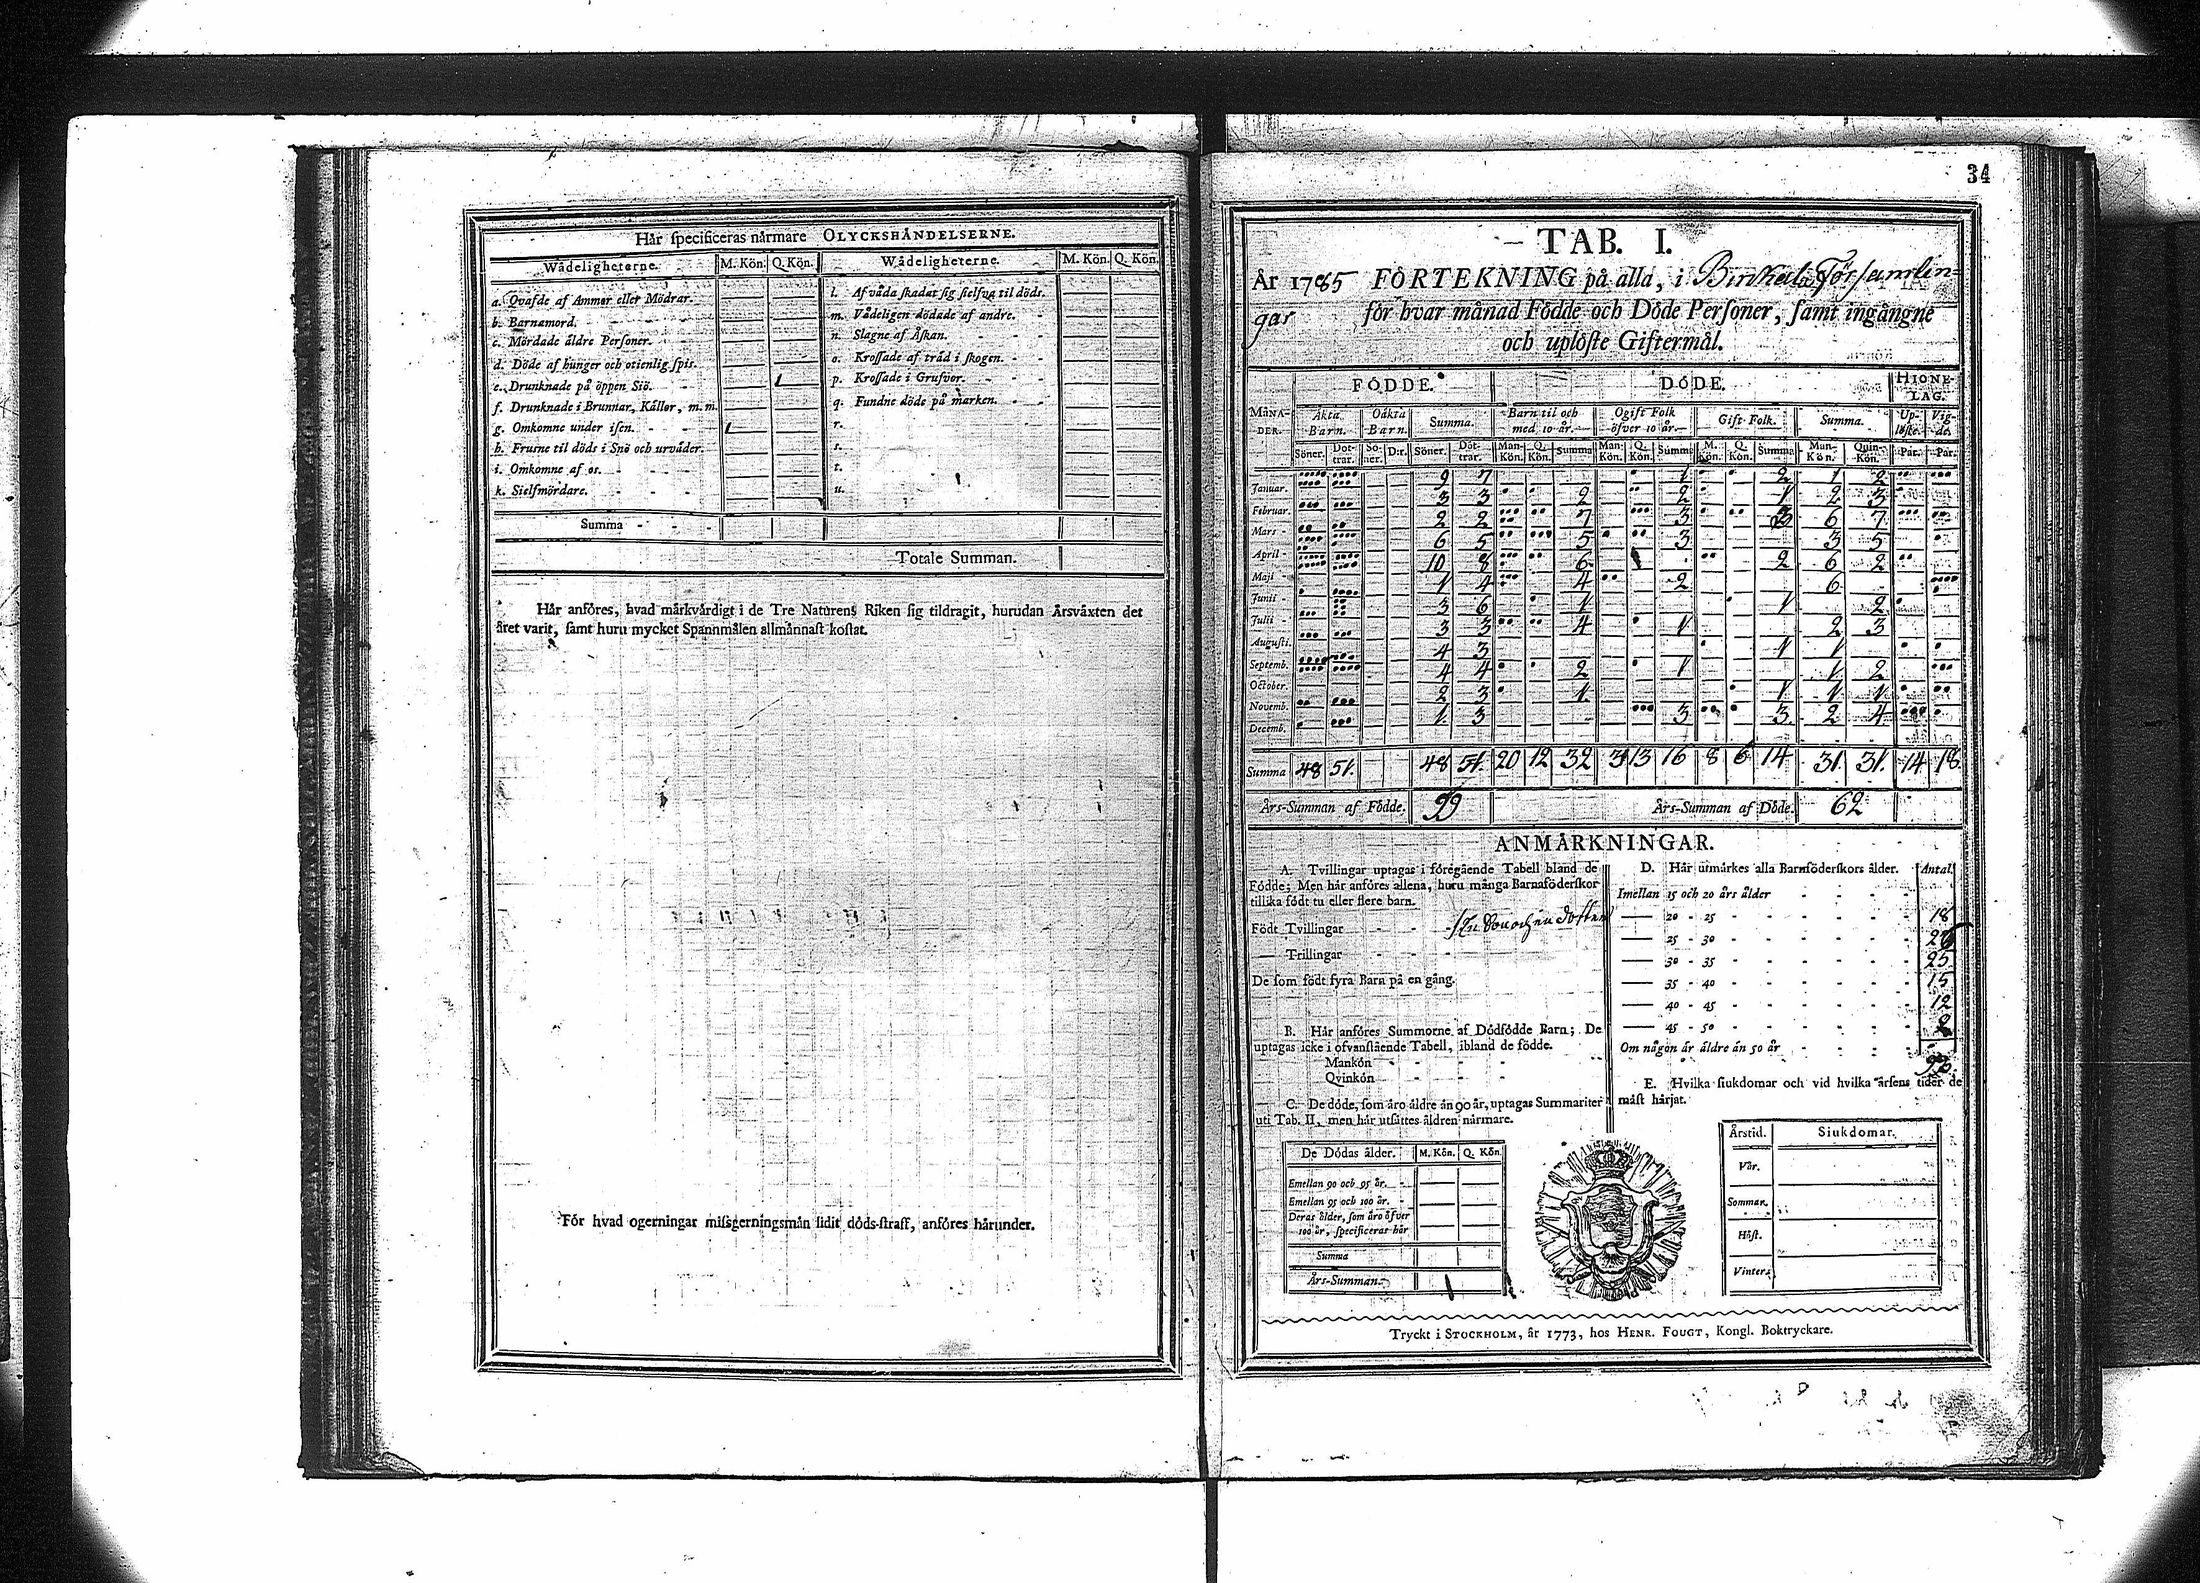 Här specificeras närmare OLYCKSHÄNDELSERNE.
Wådeligheterne. M. Kön. Q. Kön. Wådeligheterne. M. Kön. Q. Kön.
a. Qvafde af Ammor eller Mödrar.
b. Barnamord.
c. Mördade äldre Personer.
d. Döde af hunger och otienlig spis.
e. Drunknade på öppen Siö. 1
f. Drunknade i Brunnar, Källor, m. m.
g. Omkomne under isen. 1
h. Frusne til döds i Snö och urväder.
i. Omkomne af os.
k. Sielfmördare.
l. Af våda skadat sig sielfva til döds.
m. Vådeligen dödade af andre.
n. Slagne af Åskan.
o. Krossade af träd i skogen.
p. Krossade i Grufvor.
q. Fundne döde på marken.
r.
s.
t.
u.
Summa
Totale Summan.
Här anföres, hvad märkvärdigt i de Tre Naturens Riken sig tildragit, hurudan Årsväxten det
året varit, samt huru mycket Spannmålen allmännast kostat.
För hvad ogerningar missgerningsmän lidit döds-straff, anföres härunder.
34
TAB. I.
År 1785 FÖRTEKNING på alla, i Birkala Församlin=
gar för hvar månad Födde och Döde Personer, samt ingångne
och uplöste Giftermål.
FÖDDE. DÖDE. HIONE-LAG.
MÅNA-DER. Äkta Barn. Oäkta Barn. Summa. Barn til och med 10 år. Ogift Folk öfver 10 år. Gift Folk. Summa. Up-löste. Vig-de.
Söner. Döt-trar. Sö-ner. D:r. Söner. Döt-trar. Man-Kön. Q. Kön. Summa Man-Kön. Q. Kön. Summa M. Kön. Q. Kön. Summa Man-Kön. Quin-Kön. Par. Par.
Januar. 9 7 1 2 1 2
Februar. 3 3 2 2 1 2 3
Mars 2 2 7 3 3 6 7
April 6 5 5 3 3 5
Maji 10 8 6 2 6 2
Junii 1 4 4 2 6
Julii 3 6 1 1 2
Augusti. 3 3 4 1 2 3
Septemb. 4 3 1 1
October. 4 4 2 1 1 2
Novemb. 2 3 1 1 1 1
Decemb. 1 3 3 3 2 4
Summa 48 51 48 51 20 12 32 3 13 16 8 6 14 31 31 14 18
Års-Summan af Födde. 99 Års-Summan af Döde. 62
ANMÄRKNINGAR.
A. Tvillingar uptagas i föregående Tabell bland de
Födde; Men här anföres allena, huru många Barnaföderskor
tillika födt tu eller flere barn.
Födt Tvillingar 1 En Son och en dotter
Trillingar
De som födt fyra Barn på en gång.
B. Här anföres Summorne af Dödfödde Barn; De
uptagas icke i ofvanstående Tabell, ibland de födde.
Mankön
Qvinkön
C. De döde, som äro äldre än 90 år, uptagas Summariter
uti Tab. II, men här utsättes åldren närmare.
De Dödas ålder. M. Kön. Q. Kön.
Emellan 90 och 95 år.
Emellan 95 och 100 år.
Deras ålder, som äro öfver
100 år, specificeras här
Summa
Års-Summan.
D. Här utmärkes alla Barnföderskors ålder. Antal.
Imellan 15 och 20 års ålder
20 - 25 18
25 - 30
30 - 35 25
35 - 40 15
40 - 45 12
45 - 50
Om någon är äldre än 50 år
E. Hvilka siukdomar och vid hvilka årsens tider de
mäst härjat.
Årstid. Siukdomar.
Vår.
Sommar.
Höst.
Vinter.
Tryckt i STOCKHOLM, år 1773, hos HENR. FOUGT, Kongl. Boktryckare.